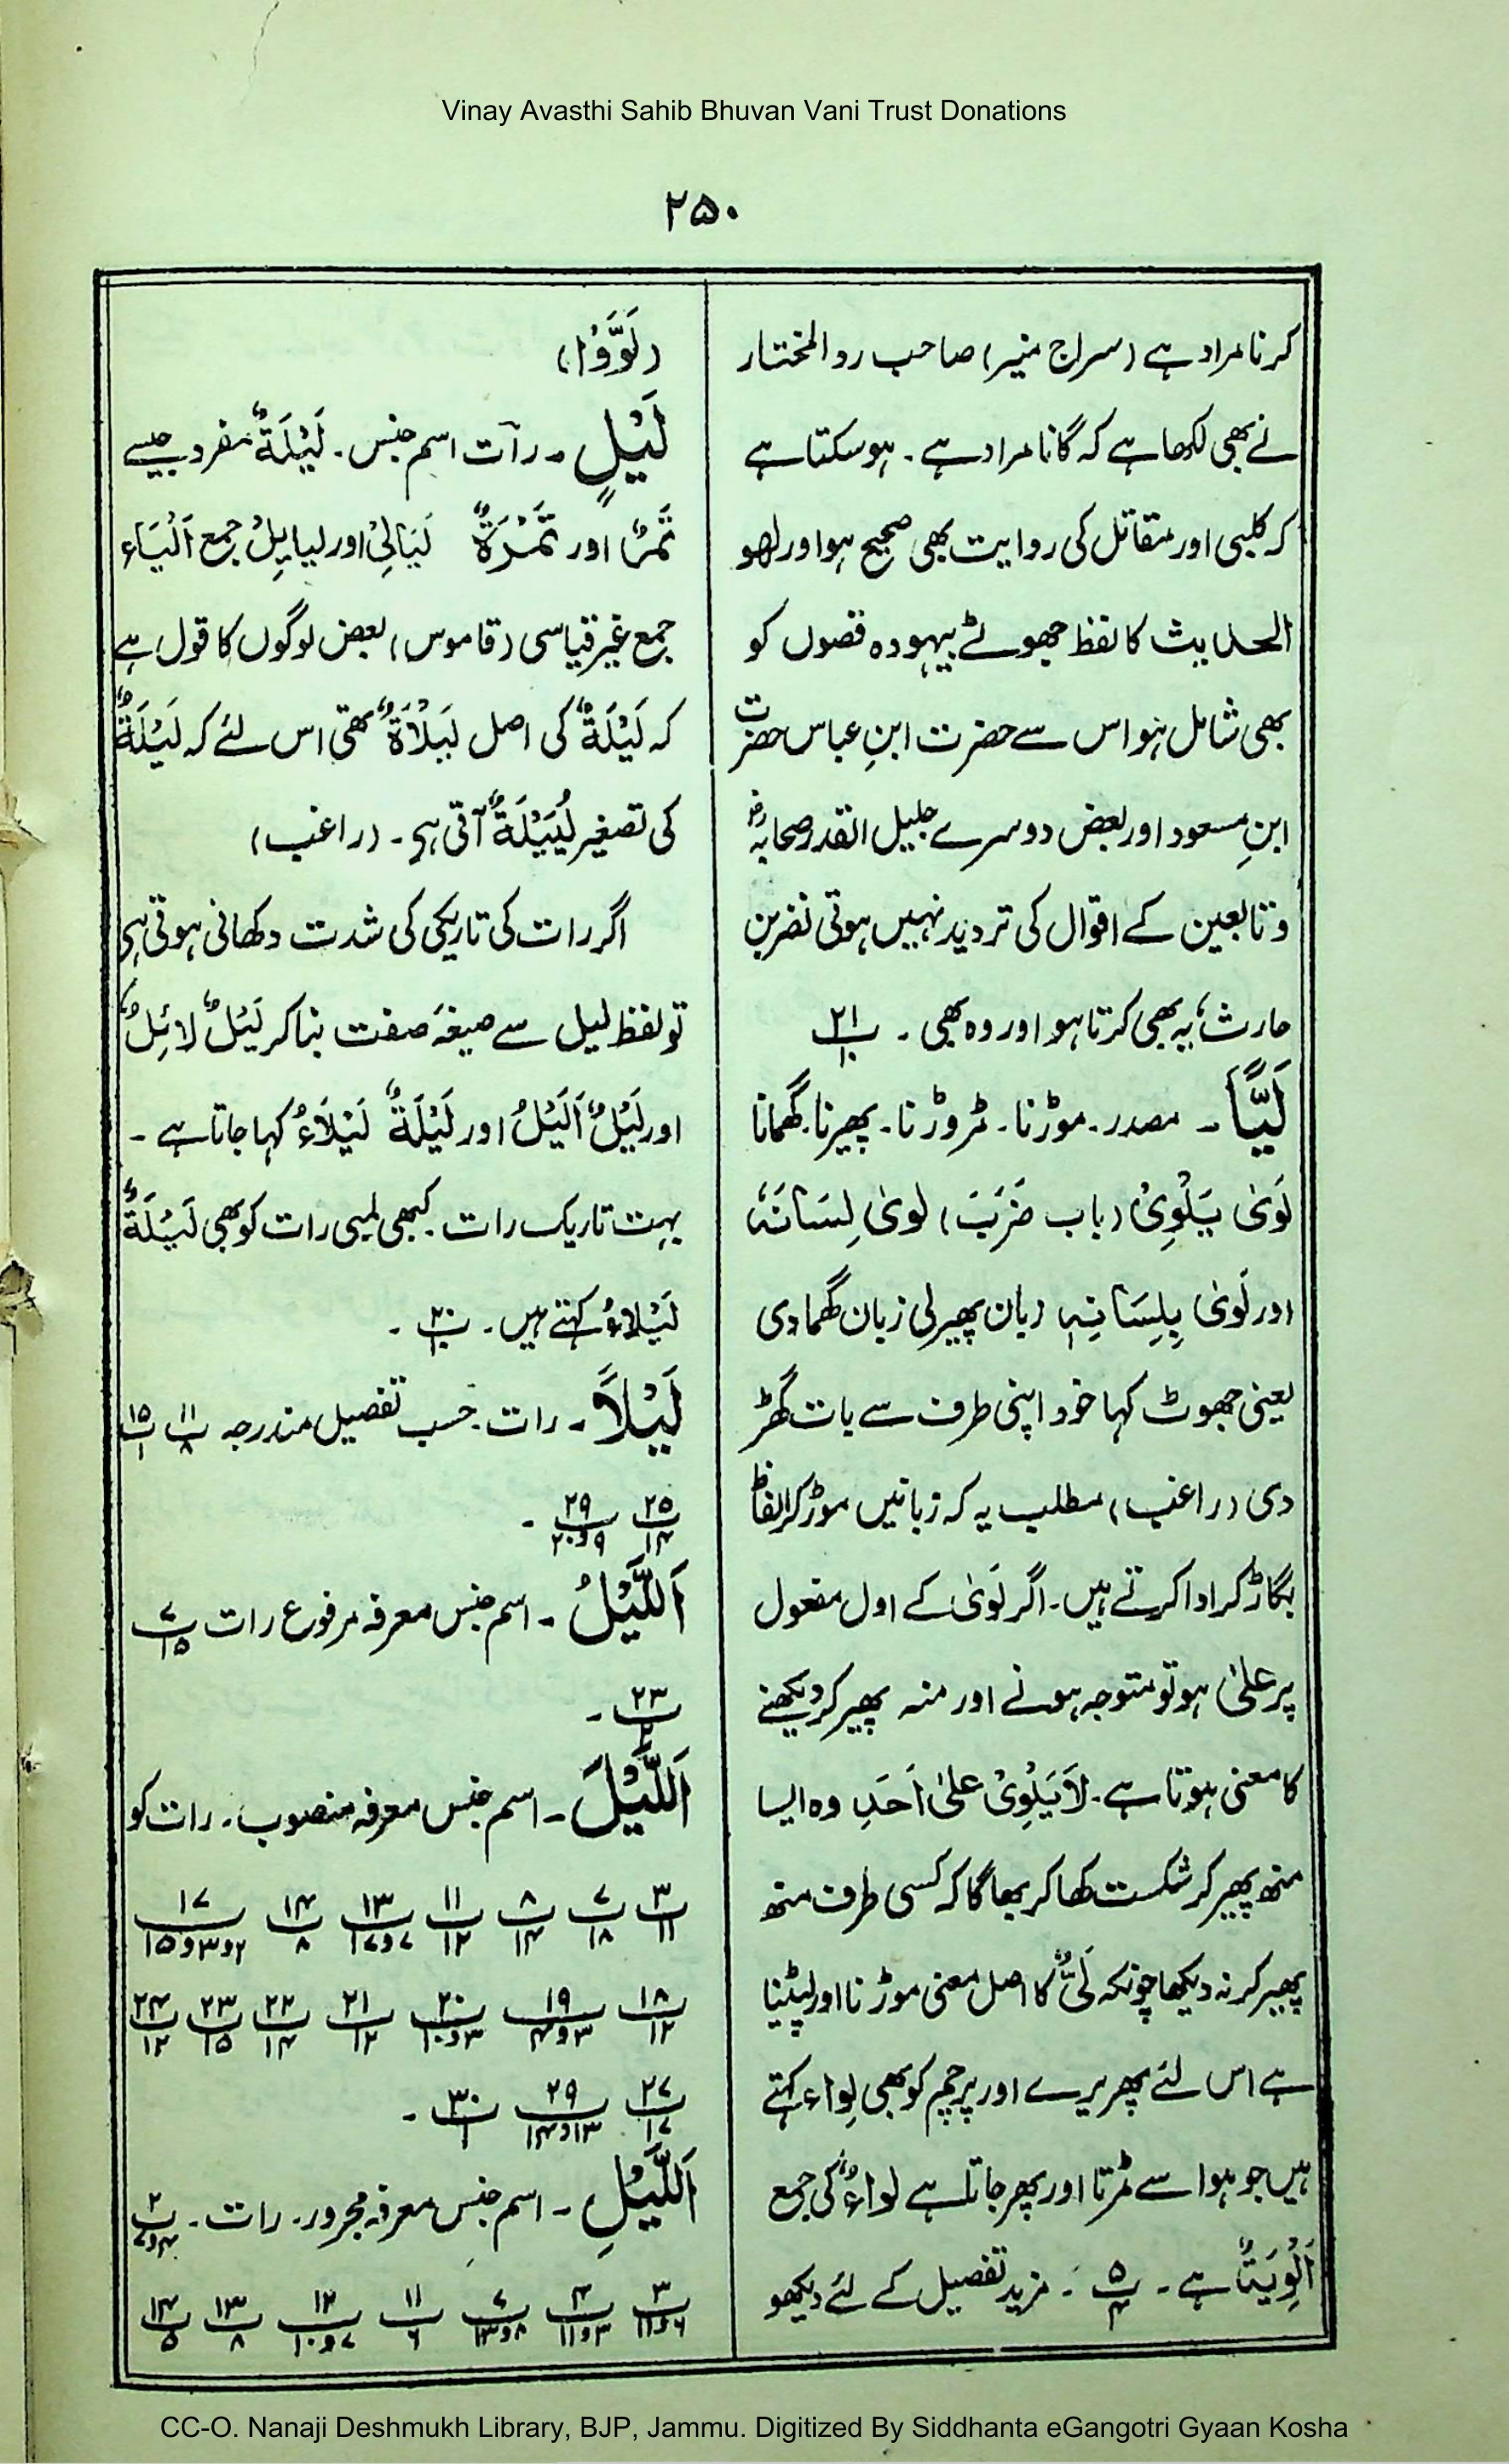 Vinay Avasthi Sahib Bhuvan Vani Trust Donations
۲۵۰
کرنا مراد ہے (سراج منیر) صاحب رد المختار
نے بھی لکھا ہے کہ گانا مراد ہے۔ ہو سکتا ہے
کہ کلبی اور مقاتل کی روایت بھی صحیح ہو اور لھو
الحدیث کا لفظ جھوٹے بیہودہ قصوں کو
بھی شامل ہو اس سے حضرت ابنِ عباس حضرت
ابنِ مسعود اور بعض دوسرے جلیل القدر صحابہؓ
و تابعین کے اقوال کی تردید نہیں ہوتی نضر بن
حارث یہ بھی کرتا ہو اور وہ بھی۔ ۲۱/۱۰
لَیًّا۔ مصدر۔ موڑنا۔ مروڑنا۔ پھیرنا۔ گھمانا
لَویٰ یَلْوِیْ (باب ضَرَبَ) لویٰ لِسَانَہٗ
اور لَویٰ بِلِسَانِہٖ زبان پھیر لی زبان گھما دی
یعنی جھوٹ کہا خود اپنی طرف سے بات گھڑ
دی (راغب) مطلب یہ کہ زبانیں موڑ کر الفاظ
بگاڑ کر ادا کرتے ہیں۔ اگر لَویٰ کے اول مفعول
پر علیٰ ہو تو متوجہ ہونے اور منہ پھیر کر دیکھنے
کا معنی ہوتا ہے۔ لَا یَلْوِیْ علیٰ اَحَدٍ وہ ایسا
منھ پھیر کر شکست کھا کر بھاگا کہ کسی طرف منھ
پھیر کر نہ دیکھا چونکہ لَیٌّ کا اصل معنی موڑنا اور لپیٹنا
ہے اس لئے پھریرے اور پرچم کو بھی لِواء کہتے
ہیں جو ہوا سے مڑتا اور پھر جاتا ہے لواءٌ کی جمع
اَلْوِیَۃٌ ہے۔ ۵/۴ ۔ مزید تفصیل کے لئے دیکھو
(لَوَّوْا)
لَیْلٍ۔ رات اسم جنس۔ لَیْلَۃٌ مفرد جیسے
تَمْرٌ اور تَمْرَۃٌ لَیَالِیْ اور لیایِلُ جمع اَلْیَاء
جمع غیر قیاسی (قاموس) بعض لوگوں کا قول ہے
کہ لَیْلَۃٌ کی اصل لَیْلَاۃٌ تھی اس لئے کہ لَیْلَۃٌ
کی تصغیر لُیَیْلَۃٌ آتی ہے۔ (راغب)
اگر رات کی تاریکی کی شدت دکھانی ہوتی ہے
تو لفظ لیل سے صیغۂ صفت بنا کر لَیْلٌ لائِلٌ
اور لَیْلٌ اَلْیَلُ اور لَیْلَۃٌ لَیْلَاءُ کہا جاتا ہے۔
بہت تاریک رات۔ کبھی لمبی رات کو بھی لَیْلَۃٌ
لَیْلَاءُ کہتے ہیں۔ ۳۰/۱۰ ۔
لَیْلًا۔ رات۔ حسب تفصیل مندرجہ ۱۱/۸ ۱۵/۱
۲۵/۱۴ ۲۹/۹ و ۲۰ ۔
اَللَّیْلُ۔ اسم جنس معرفہ مرفوع رات ۷/۱۵
۲۳/۲ ۔
اَللَّیْلَ۔ اسم جنس معرفہ منصوب۔ رات کو
۳/۱۱ ۷/۱۸ ۸/۱۴ ۱۱/۱۲ ۱۳/۷ و ۱۷ ۱۴/۸ ۱۷/۲ و ۳ و ۱۵
۱۸/۱۲ ۱۹/۳ و ۴ ۲۰/۳ و ۱۰ ۲۱/۱۲ ۲۲/۱۴ ۲۳/۱۵ ۲۴/۱۲
۲۷/۱۷ ۲۹/۱۳ و ۱۴ ۳۰/۱ ۔
اَللَّیْلِ۔ اسم جنس معرفہ مجرور۔ رات۔ ۲/۴ و ۷
۳/۶ و ۱۱ ۴/۳ و ۱۱ ۷/۸ و ۱۳ ۱۱/۶ ۱۲/۷ و ۱۰ ۱۳/۸ ۱۴/۵
CC-O. Nanaji Deshmukh Library, BJP, Jammu. Digitized By Siddhanta eGangotri Gyaan Kosha